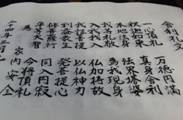 舎利礼文
一心頂礼 万徳円満
釈迦如来 真身舎利
本地法身 法界塔婆
我等礼敬 為我現身
入我我入 仏加持故
我証菩提 以仏神力
利益衆生 発菩提心
修菩薩行 同入円寂
平等大智 今将頂礼
家内安全